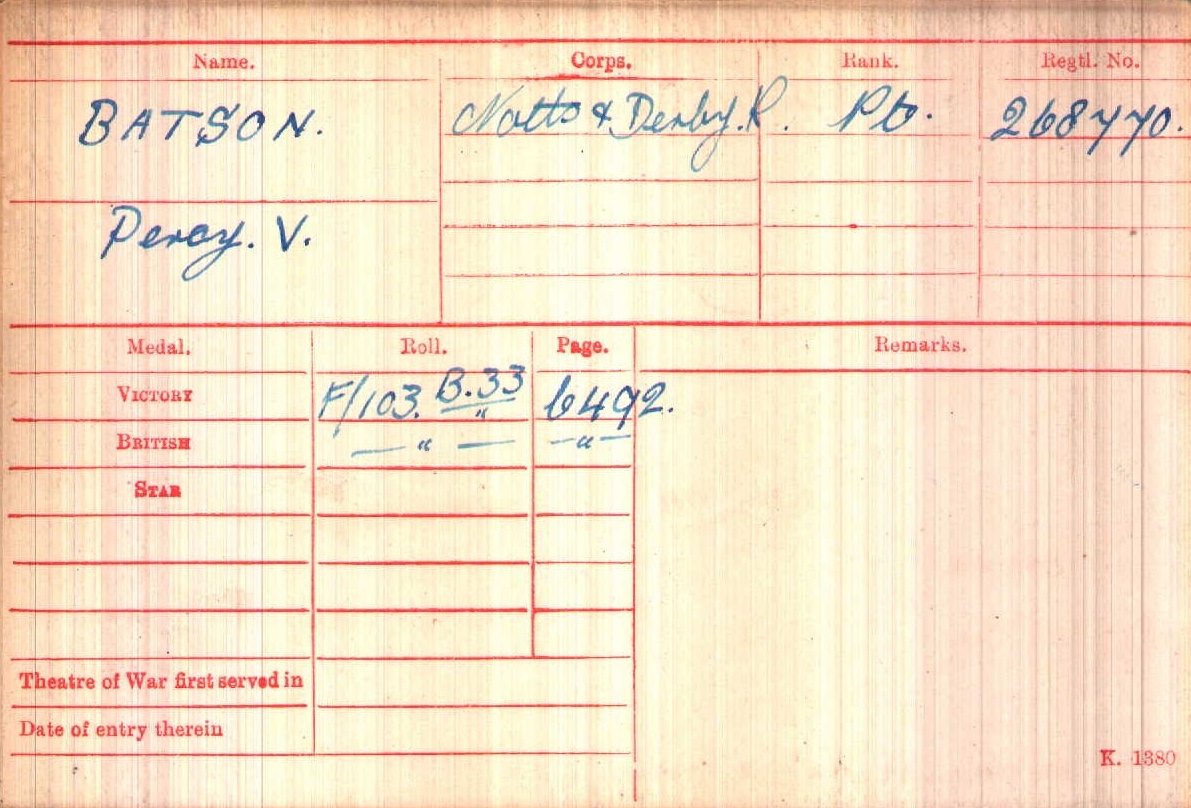 Name. Corps. Rank. Regtl. No.
BATSON. Notts & Derby. R. Pte. 268770.
Percy. V.
Medal. Roll. Page. Remarks.
VICTORY F/103. B.33 6492.
" 
BRITISH — " — — " —
STAR
Theatre of War first served in
Date of entry therein
K. 1380